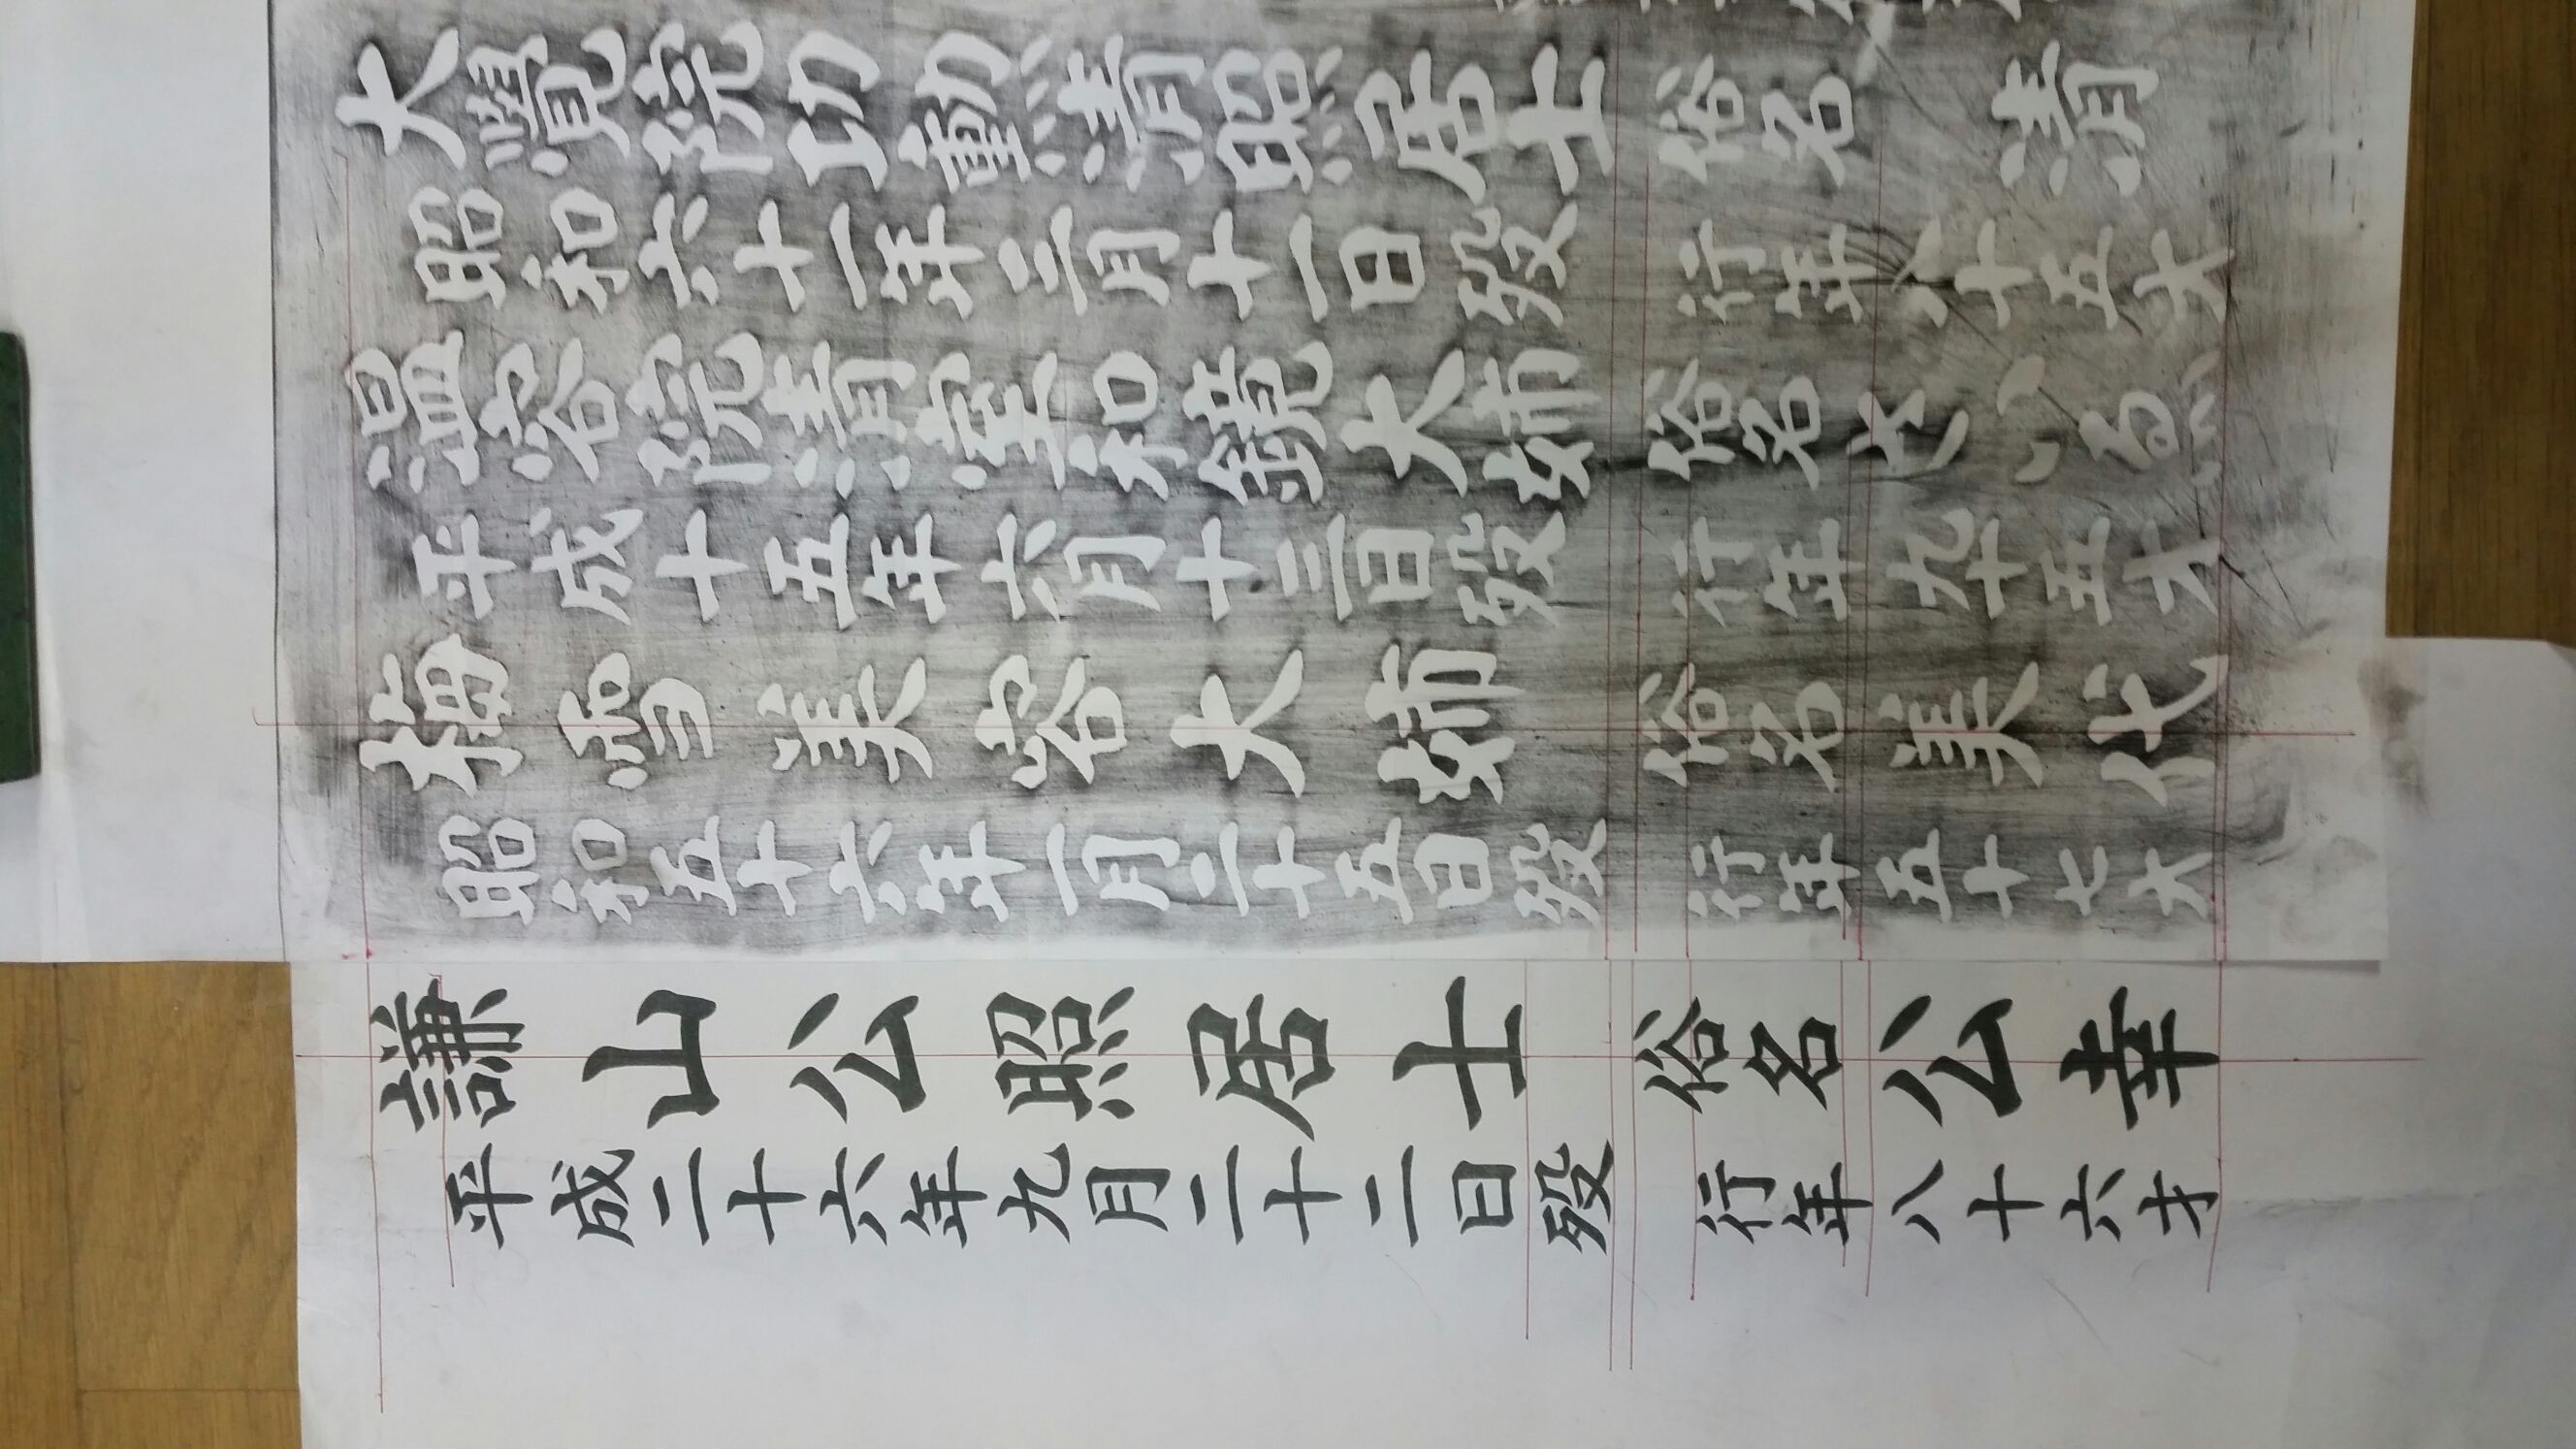 大覺院功勲清照居士 俗名 清
昭和六十一年三月十一日歿 行年八十五才
温容院清室和鏡大姉 俗名
平成十五年六月十三日歿 行年九十五才
梅雪美容大姉 俗名 美代
昭和五十六年一月二十五日歿 行年五十七才
謙山公照居士 俗名 公幸
平成二十六年九月二十二日歿 行年八十六才